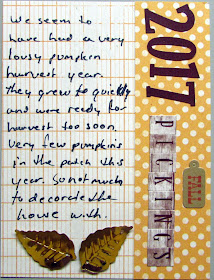 We seem to
have had a very
lousy pumpkin
harvest year.
They grew to quickly
and were ready for
harvest too soon.
Very few pumpkins
in the patch this
year. So not much
to decorate the
house with.
2017
PICKINGS
FALL